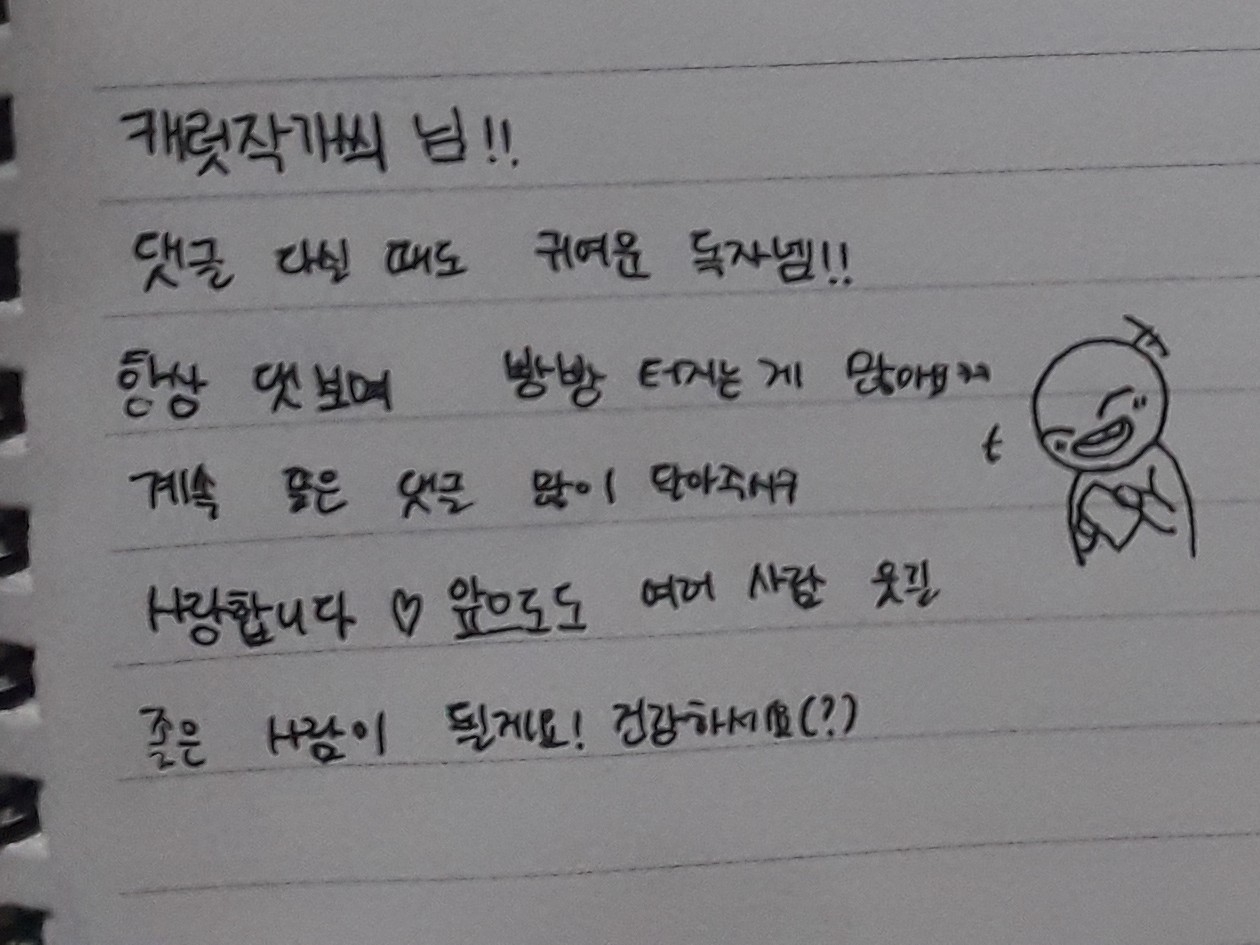 캐럿작가씨 님!!
댓글 다실 때도 귀여운 독자넴!!
항상 댓보며 빵빵 터지는 게 많아요ㅋㅋ
계속 좋은 댓글 많이 달아주셔
사랑합니다 ♡ 앞으로도 여러 사람 웃길
좋은 사람이 될게요! 건강하세요(?)